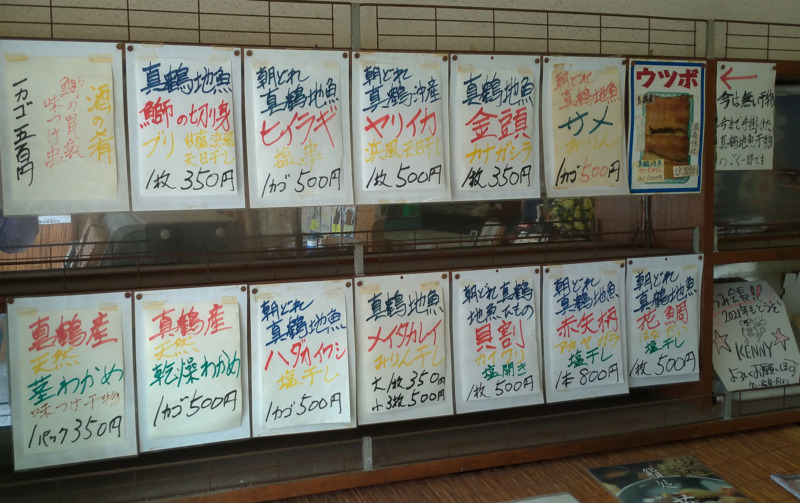 酒の肴
鰤の胃袋
味つけ串
一カゴ 五百円
真鶴地魚
鰤の切り身
ブリ
天日干し
1枚 350円
朝どれ
真鶴地魚
ヒイラギ
塩串
1カゴ 500円
朝どれ
真鶴沖産
ヤリイカ
浜風天日干し
1枚 500円
真鶴地魚
金頭
カナガシラ
1枚 350円
朝どれ
真鶴地魚
サメ
みりん
1カゴ 500円
ウツボ
真鶴地魚
←
今は無い干物
今まで手掛けた
真鶴地魚干物
のごく一部です
真鶴産
天然
茎わかめ
味つけ干物
1パック 350円
真鶴産
天然
乾燥わかめ
1カゴ 500円
朝どれ
真鶴地魚
ハダカイワシ
塩干し
1カゴ 500円
真鶴地魚
メイタカレイ
みりん干し
大1枚 350円
小3枚 500円
朝どれ 真鶴
地魚ひもの
貝割
カイワリ
塩開き
1枚 500円
朝どれ
真鶴地魚
赤矢柄
アカヤガラ
塩干し
1本 800円
朝どれ
真鶴地魚
花鯛
塩干し
1枚 500円
2021年もどうぞ
KENNY